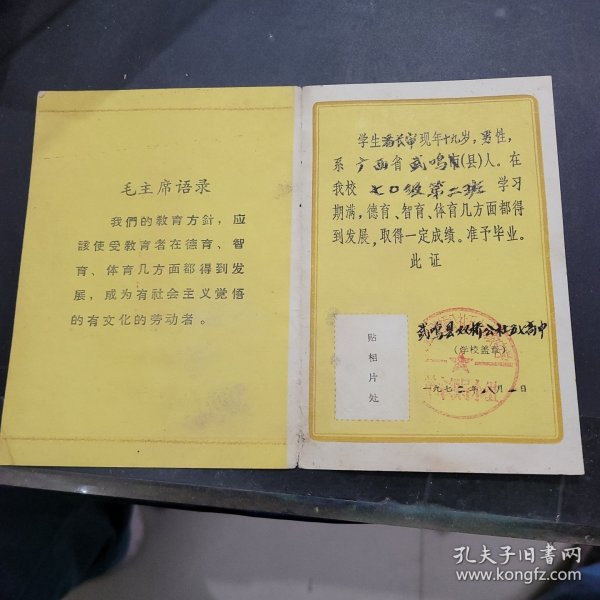 毛主席语录
我们的教育方針，应
該使受教育者在德育、智
育、体育几方面都得到发
展，成为有社会主义觉悟
的有文化的劳动者。
学生潘长审现年十九岁，男性，
系广西省武鸣市(县)人。在
我校七〇级第二班学习
期满，德育、智育、体育几方面都得
到发展，取得一定成绩。准予毕业。
此证
武鸣县双桥公社五七高中
（学校盖章）
一九七二年八月一日
贴
相
片
处
孔夫子旧书网
www.kongfz.com